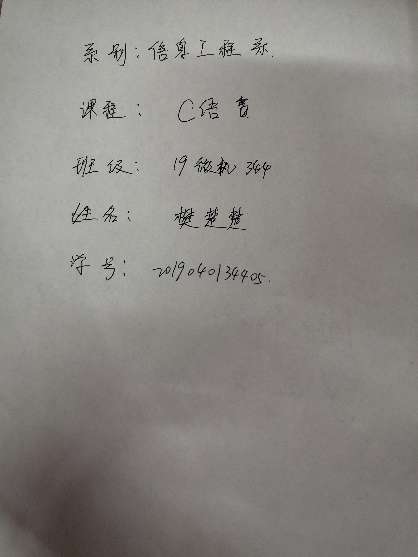 系别：信息工程系.
课程：C语言
班级：19微机344
姓名：樊楚楚
学号：2019040134405.